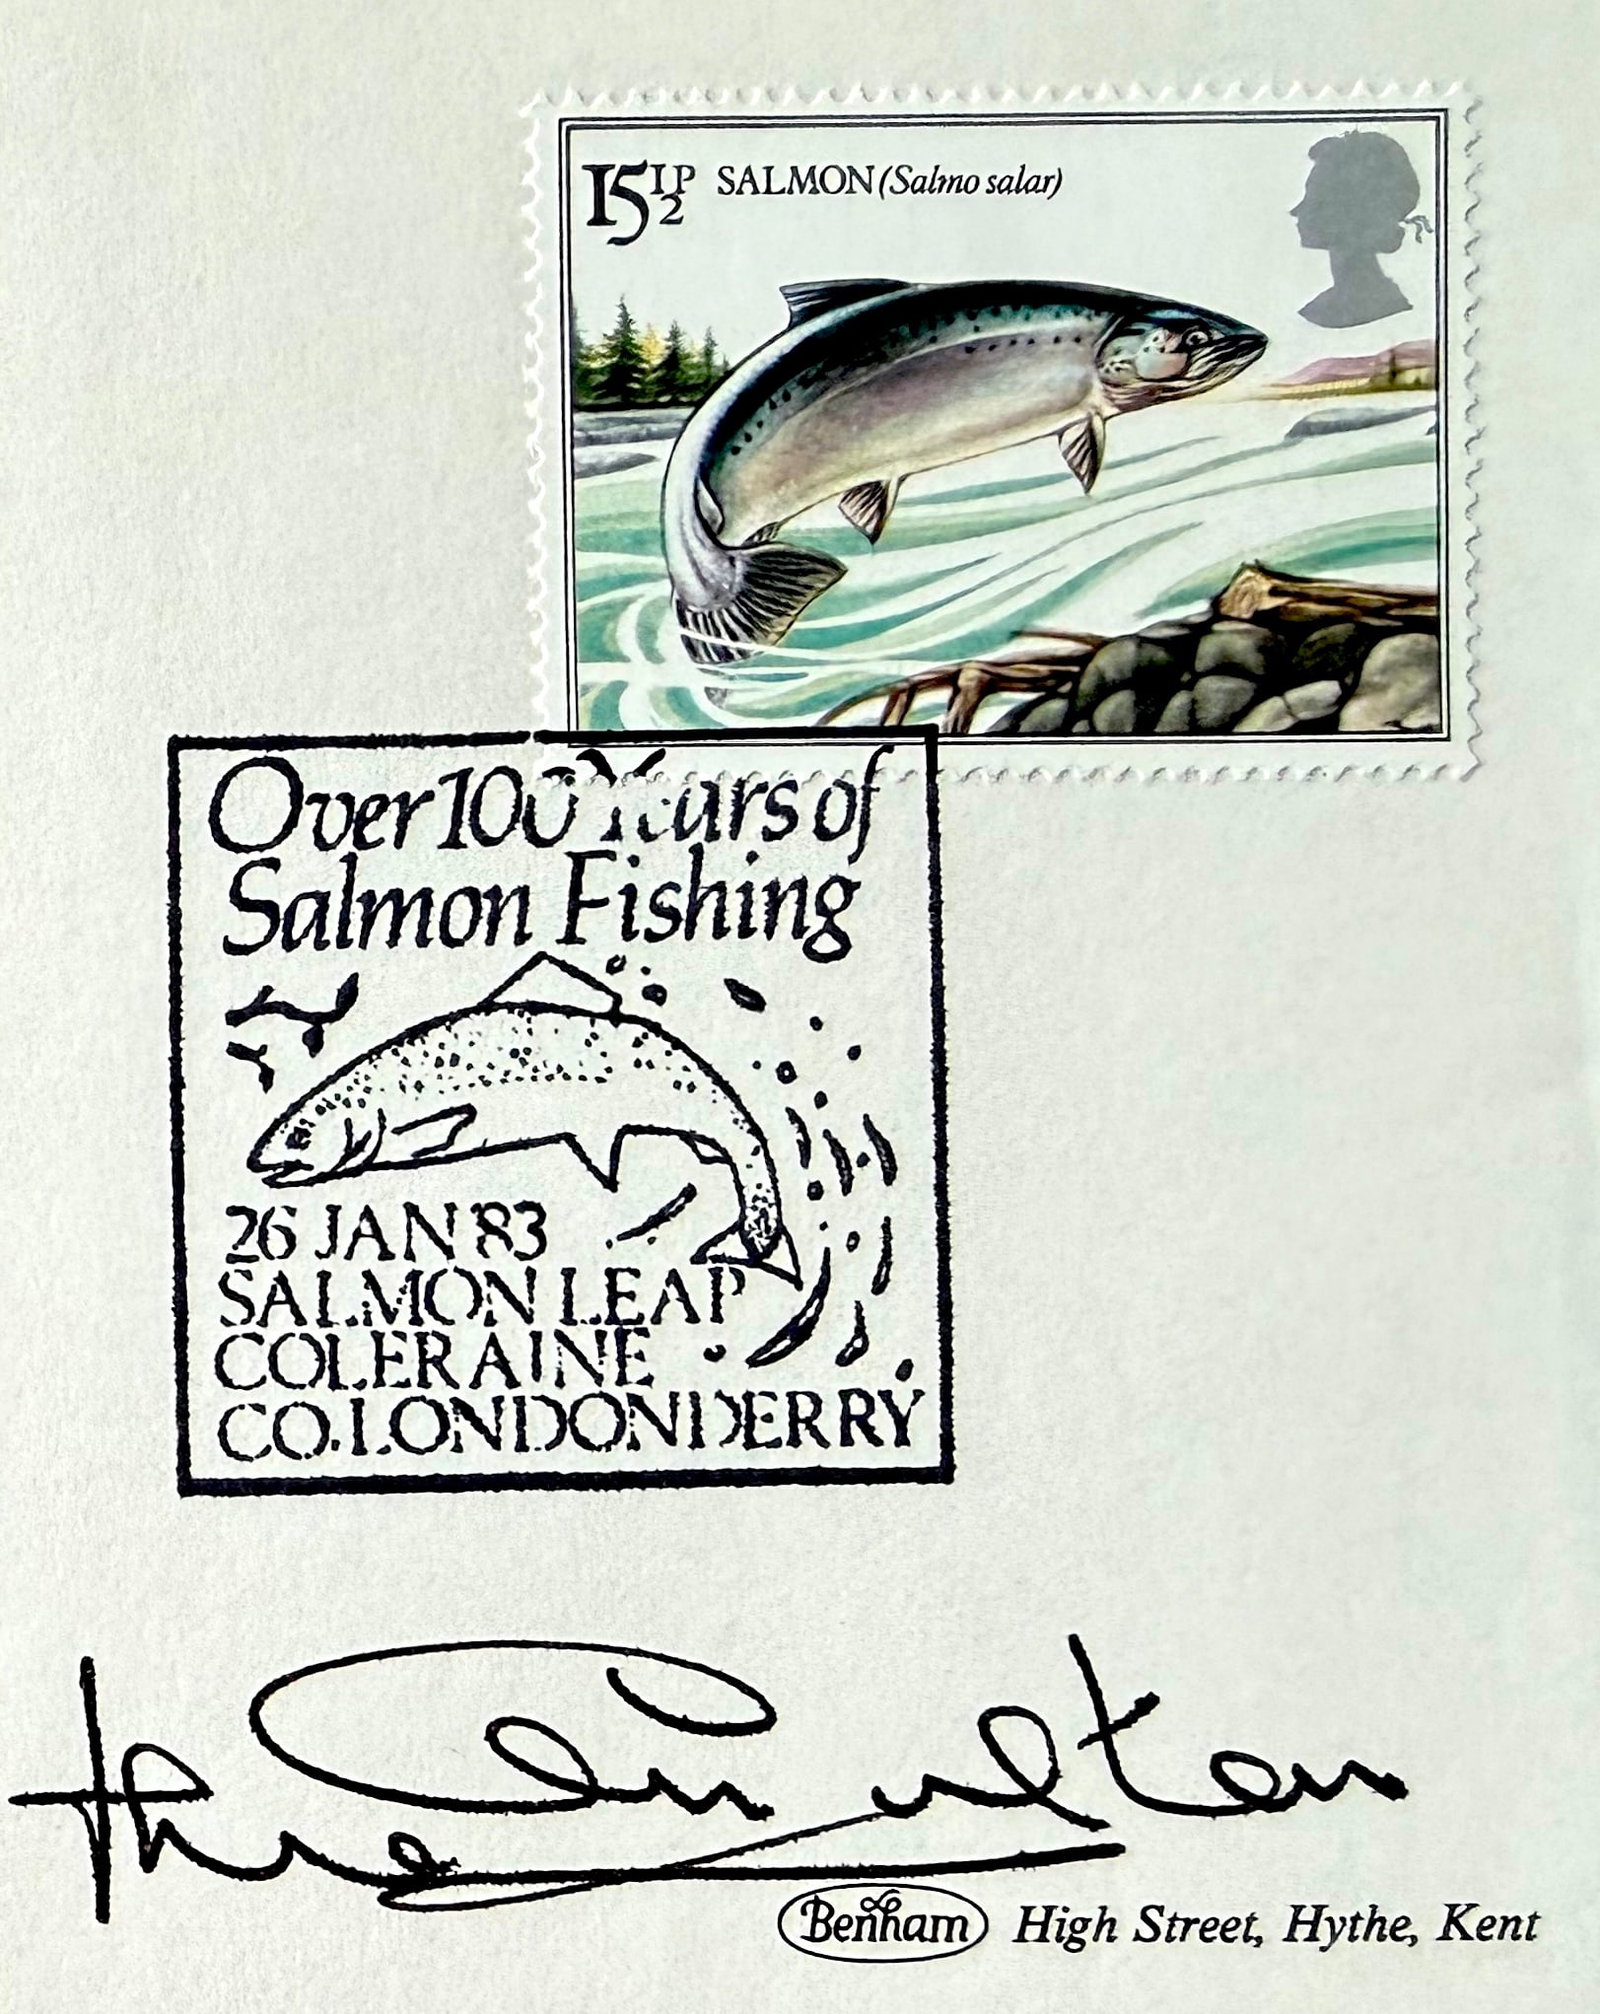 15½P SALMON (Salmo salar)
Over 100 Years of
Salmon Fishing
26 JAN '83
SALMON LEAP
COLERAINE
CO. LONDONDERRY
Benham High Street, Hythe, Kent